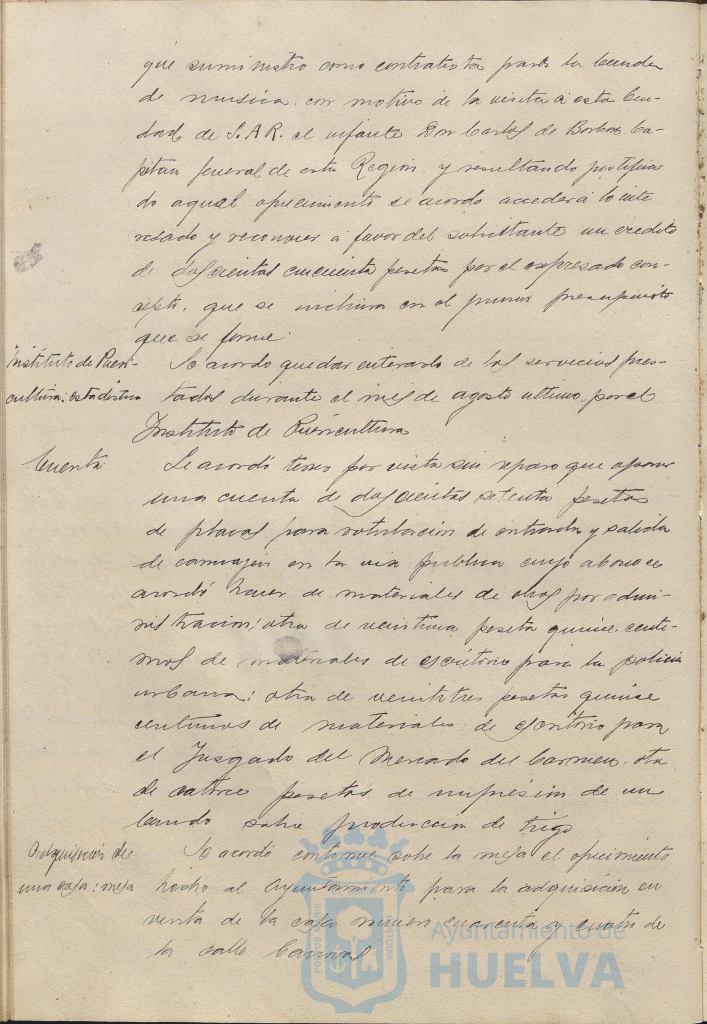 que suministro como contratista para la banda
de musica con motivo de la visita á esta Ciu-
dad de S.A.R. el infante Don Carlos de Borbon Ca-
pitan General de esta Region y resultando justifica-
do aquel ofrecimiento se acordo acceder á lo inte
resado y reconocer á favor del solicitante un credito
de doscientas cincuenta pesetas por el expresado con-
cepto, que se incluira en el primer presupuesto
que se forme.
Instituto de Pueri-
cultura: estadistica
Se acordo quedar enterado de los servicios pres-
tados durante el mes de agosto ultimo por el
Instituto de Puericultura
Cuenta
Se acordó tener por vista sin reparo que oponer
una cuenta de doscientas setenta pesetas
de placas para rotulacion de entrada y salida
de carruajes en la via publica cuyo abono se
acordó hacer de materiales de obras por admi-
nistracion; otra de veintiuna peseta quince centi-
mos de materiales de escritorio para la policia
urbana; otra de veintitres pesetas quince
centimos de materiales de escritorio para
el Juzgado del Mercado del Carmen. otra
de catorce pesetas de impresion de un
bando sobre produccion de trigo
Adquisicion de
una casa: mesa
Se acordó continue sobre la mesa el ofrecimiento
hecho al Ayuntamiento para la adquisicion en
venta de la casa numero cuarenta y cuatro de
la calle
Ayuntamiento de
HUELVA